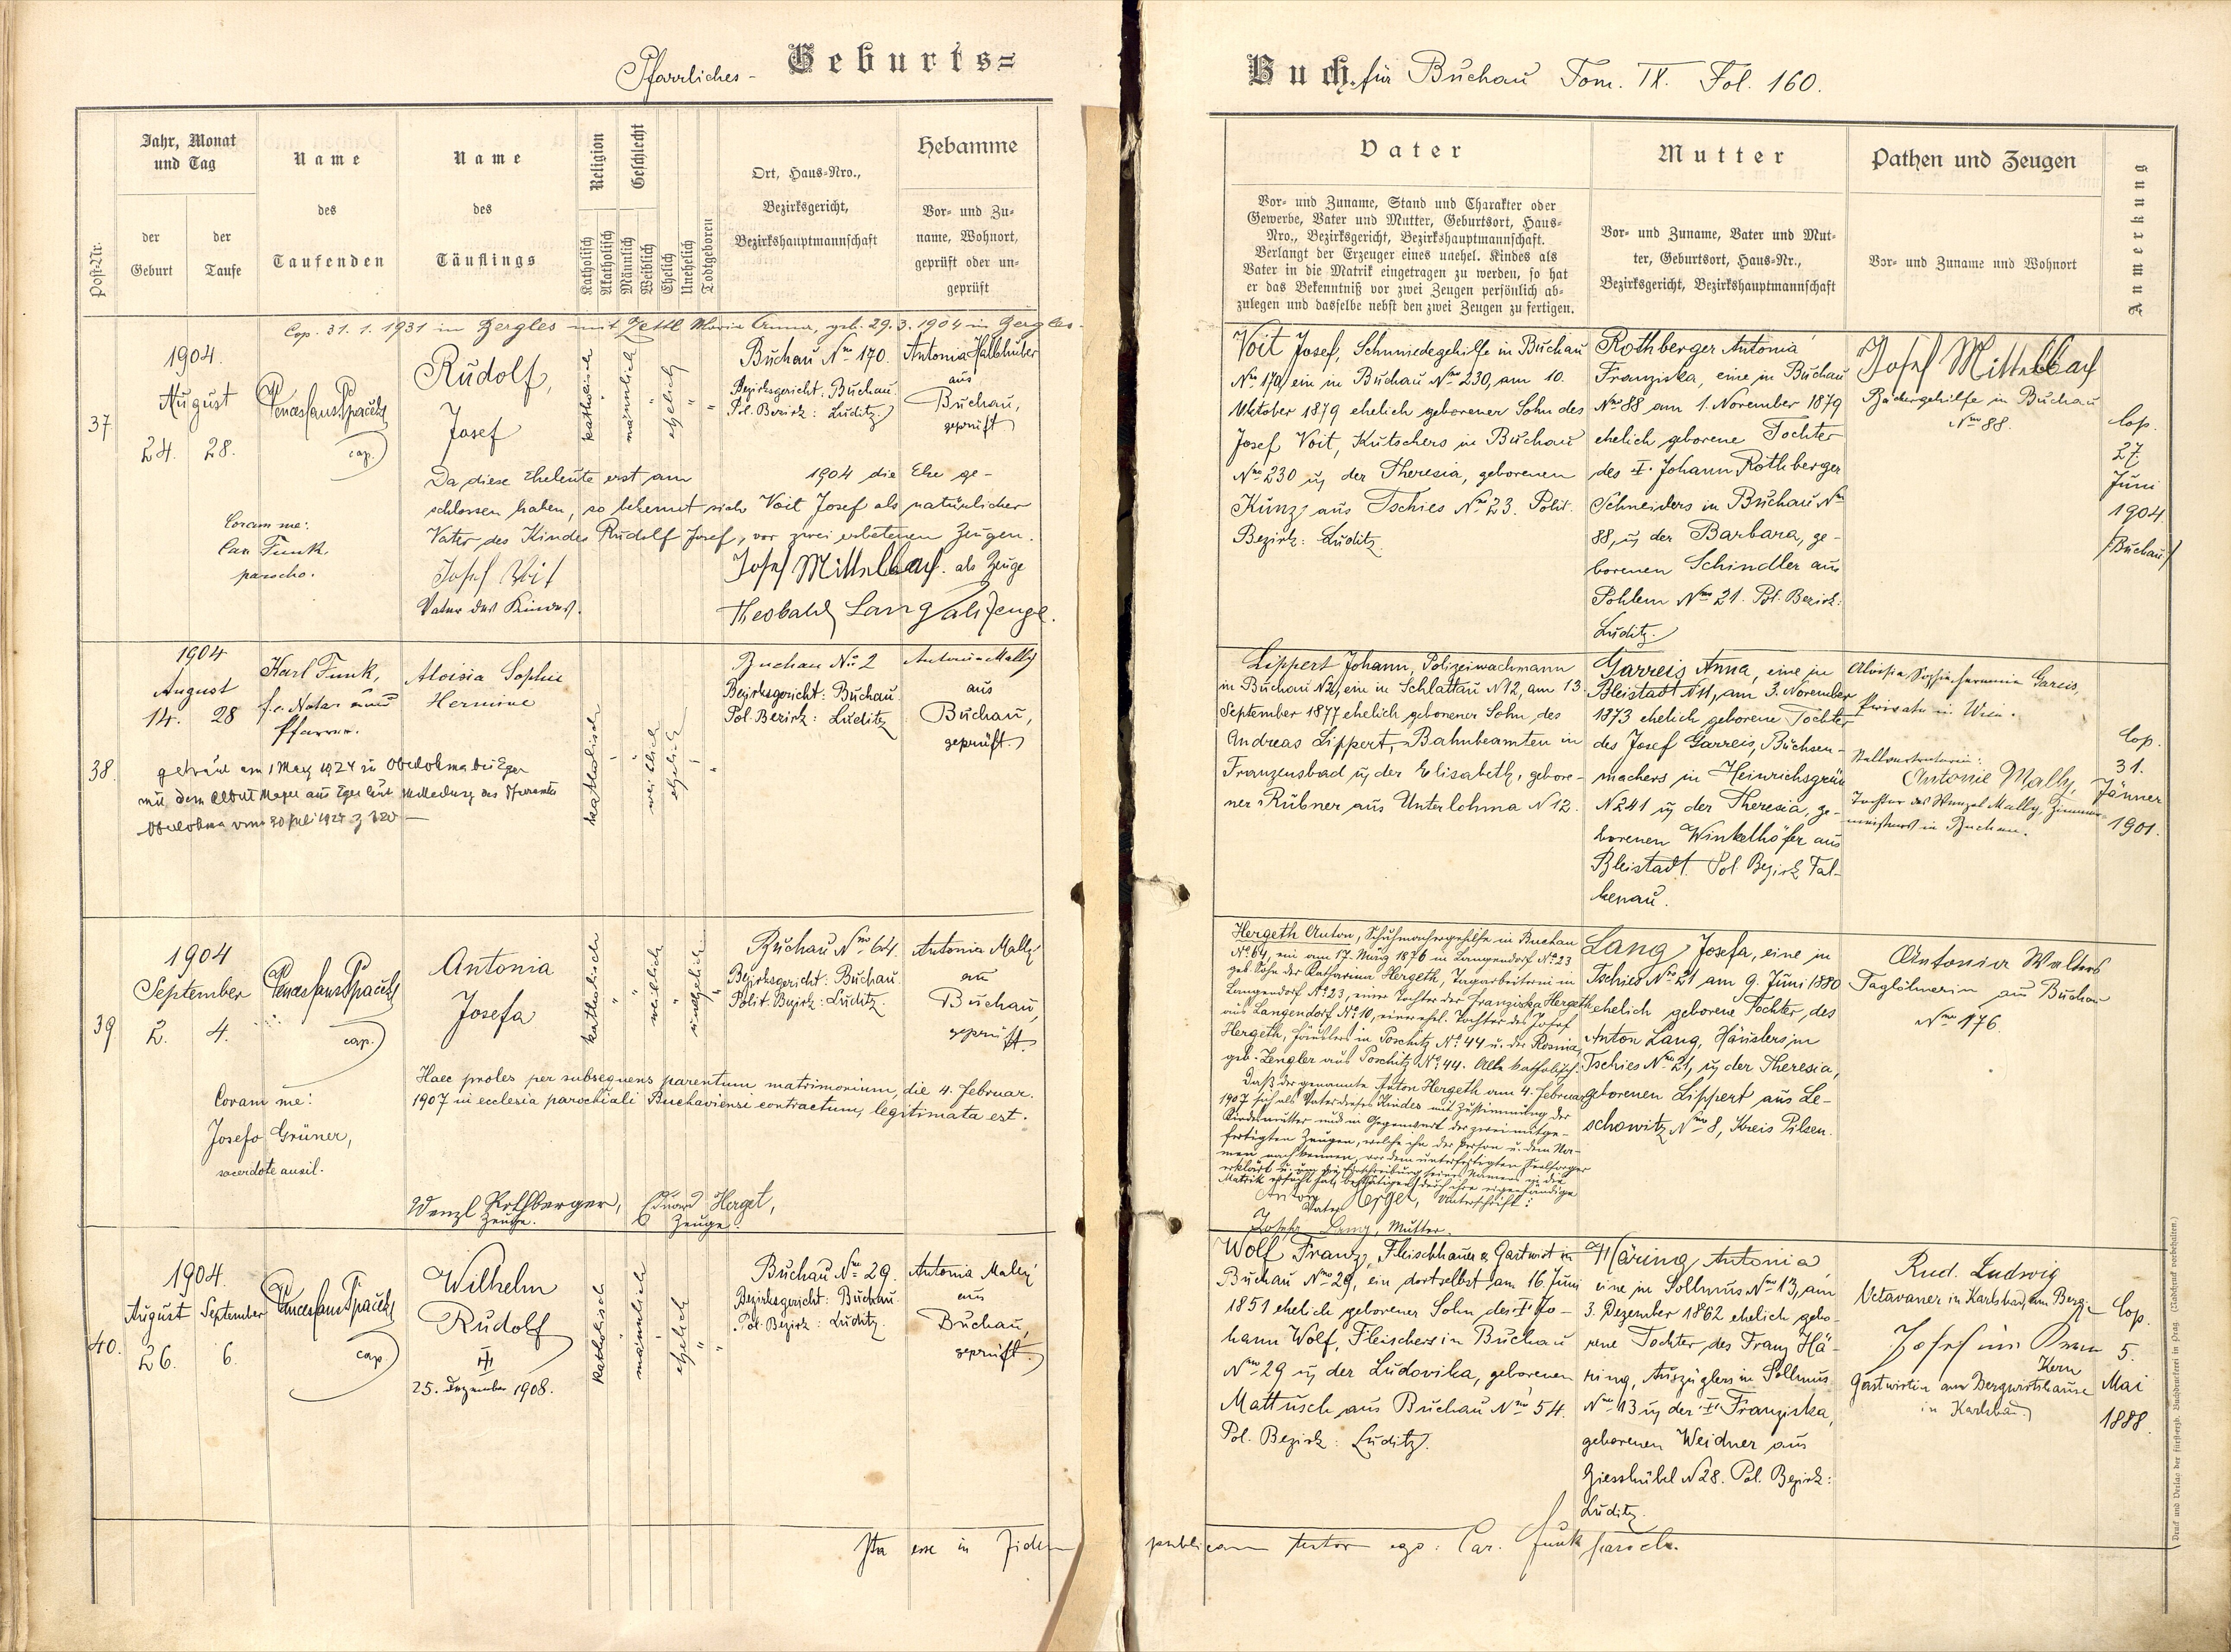 Pfarrliches - Geburts=
Jahr, Monat
und Tag
der
Geburt
der
Taufe
Post-Nr.
Name
des
Taufenden
Name
des
Täuflings
Religion
Katholisch
Akatholisch
Geschlecht
Männlich
Weiblich
Ehelich
Unehelich
Todtgeboren
Ort, Haus-Nro.,
Bezirksgericht,
Bezirkshauptmannschaft
Hebamme
Vor- und Zu-
name, Wohnort,
geprüft oder un-
geprüft
Cop. 31. 1. 1931 in Zergles mit Zettl Maria Anna, geb. 29. 3. 1904 in Zergles.
37
1904.
August
24. 28.
cap.
Rudolf,
Josef
katholisch
männlich
ehelich
Buchau Nro 170.
Bezirksgericht: Buchau.
Pol. Bezirk: Luditz
Antonia Hallhuber
aus
Buchau,
geprüft
Da diese Eheleute erst am 1904 die Ehe ge-
schlossen haben, so bekennt sich Voit Josef als natürlicher
Vater des Kindes Rudolf Josef, vor zwei erbetenen Zeugen.
Coram me:
Car. Funk.
parocho.
Josef Voit
Vater des Kindes.
Josef Mittelbach als Zeuge
Theobald Lang als Zeuge.
38.
1904
August
14. 28
Karl Funk,
f. e. Notar und
Pfarrer.
Aloisia Sophie
Hermine
katholisch
weiblich
ehelich
Buchau No 2
Bezirksgericht: Buchau.
Pol. Bezirk: Luditz
Antonia Mally
aus
Buchau,
geprüft
getraut am 1 May 1924 in Oberlohma bei Eger
mit dem Albert Mayer aus Eger laut Mitteilung des Pfarramts
Oberlohma vom 20 Juli 1924 z 320
39
1904
September
2. 4.
cap.
Antonia
Josefa
katholisch
weiblich
unehelich
Buchau Nro 64.
Bezirksgericht: Buchau.
Polit. Bezirk: Luditz.
Antonia Mally
aus
Buchau,
geprüft
Haec proles per subsequens parentum matrimonium, die 4. Februar.
1907 in ecclesia parochiali Buchaviensi contractum, legitimata est.
Coram me:
Josefo Grüner,
sacerdote auxil.
Wenzl Rothberger, Eduard Herget,
Zeuge. Zeuge.
40.
1904.
August September
26. 6.
cap
Wilhelm
Rudolf
25. Dezember 1908.
katholisch
männlich
ehelich
Buchau Nro 29.
Bezirksgericht: Buchau.
Pol. Bezirk: Luditz.
Antonia Mally
aus
Buchau,
geprüft.
Ita esse in fidem
Buch. für Buchau Tom. IX. Fol. 160.
Vater
Vor- und Zuname, Stand und Charakter oder
Gewerbe, Vater und Mutter, Geburtsort, Haus-
Nro., Bezirksgericht, Bezirkshauptmannschaft.
Verlangt der Erzeuger eines unehel. Kindes als
Vater in die Matrik eingetragen zu werden, so hat
er das Bekenntniß vor zwei Zeugen persönlich ab-
zulegen und dasselbe nebst den zwei Zeugen zu fertigen.
Mutter
Vor- und Zuname, Vater und Mut-
ter, Geburtsort, Haus-Nr.,
Bezirksgericht, Bezirkshauptmannschaft
Pathen und Zeugen
Vor- und Zuname und Wohnort
Anmerkung
Voit Josef, Schmiedegehilfe in Buchau
Nro 170, ein in Buchau Nro 230, am 10.
Oktober 1879 ehelich geborener Sohn des
Josef Voit, Kutschers in Buchau
Nro 230 u. der Theresia, geborenen
Kunz aus Tschies Nro 23. Polit.
Bezirk: Luditz.
Rothberger Antonia
Franziska, eine in Buchau
Nro 88 am 1. November 1879
ehelich geborene Tochter
des † Johann Rothberger
Schneiders in Buchau Nro
88, u. der Barbara, ge-
borenen Schindler aus
Pohlem Nro 21. Pol. Bezirk:
Luditz.
Josef Mittelbach
Bäckergehilfe in Buchau
Nro 88.
Cop.
27.
Juni
1904.
(Buchau)
Lippert Johann, Polizeiwachmann
in Buchau N2, ein in Schlattau N12, am 13.
September 1877 ehelich geborener Sohn des
Andreas Lippert, Bahnbeamten in
Franzensbad u. der Elisabeth, gebore-
ner Rubner aus Unterlohma N12.
Garreis Anna, eine in
Bleistadt N11, am 3. November
1873 ehelich geborene Tochter
des Josef Garreis, Büchsen-
machers in Heinrichsgrün
N241 u. der Theresia, ge-
borenen Winkelhöfer aus
Bleistadt. Pol. Bezirk Fal-
kenau.
Aloisia Sophie Hermine Gareis,
Private in Wien.
Antonie Mally,
Tochter des Wenzel Mally, Zimmer-
meisters in Buchau.
Cop.
31.
Jänner
1901.
Hergeth Anton, Schuhmachergehilfe in Buchau
No 64, ein am 17. März 1876 in Langendorf No 23
geb. Sohn der Katharina Hergeth, Tagarbeiterin in
Langendorf No 23, einer Tochter der Franziska Hergeth
aus Langendorf No 10, einer ehel. Tochter des Josef
Hergeth, Häuslers in Poschitz No 44 u. der Rosina,
geb. Zengler aus Poschitz No 44. Alle katholisch.
Daß der genannte Anton Hergeth am 4. Februar
1907 sich als Vater dieses Kindes mit Zustimmung der
Kindesmutter und in Gegenwart der zwei mitge-
fertigten Zeugen, welche ihn der Person u. dem Na-
men nach kennen, vor dem unterfertigten Seelsorger
erklärt u. um die Einschreibung seines Namens in die
Matrik ersucht hat, bestätigen durch ihre eigenhändige
Unterschrift:
Anton Herget,
Vater
Josefa Lang, Mutter.
Lang Josefa, eine in
Tschies Nro 21 am 9. Juni 1880
ehelich geborene Tochter, des
Anton Lang, Häuslers in
Tschies Nro 21, u. der Theresia,
geborenen Lippert aus Le-
schowitz Nro 8, Kreis Pilsen.
Antonia Walters
Taglöhnerin aus Buchau
Nro 176.
Wolf Franz, Fleischhauer u. Gastwirt in
Buchau Nro 29, ein dortselbst am 16. Juni
1851 ehelich geborener Sohn, des † Jo-
hann Wolf, Fleischers in Buchau
Nro 29 u. der Ludovika, geborenen
Mattusch aus Buchau Nro 54.
Pol. Bezirk: Luditz.
Häring Antonia
eine in Sollmus Nro 13, am
3. Dezember 1862 ehelich gebo-
rene Tochter des Franz Hä-
ring, Auszüglers in Sollmus
Nro 13 u. der † Franziska,
geborenen Weidner aus
Giesshübel N28. Pol. Bezirk:
Luditz.
Rud. Ludwig
in Karlsbad, am Berg.
Kern
Gastwirtin am Bergwirtshause
in Karlsbad.
Cop.
5.
Mai
1888.
publicam testor ego: Car. Funk paroch.
Druck und Verlag der fürsterzb. Buchdruckerei in Prag. (Nachdruck vorbehalten.)